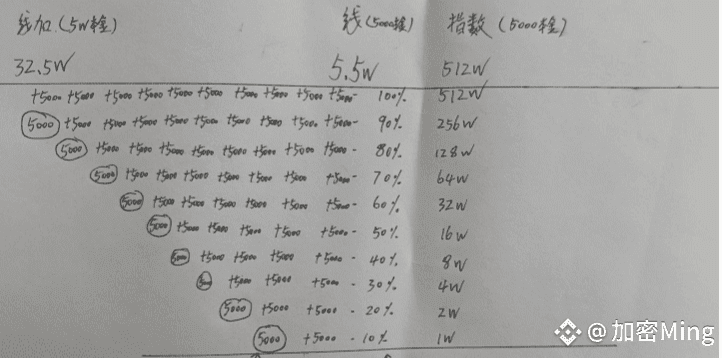 线加(5W本金) 线(5000本金) 指数(5000本金)
32.5W 5.5W 512W
+5000 +5000 +5000 +5000 +5000 +5000 +5000 +5000 +5000- 100% 512W
5000 +5000 +5000 +5000 +5000 +5000 +5000 +5000 +5000- 90% 256W
5000 +5000 +5000 +5000 +5000 +5000 +5000 +5000- 80% 128W
5000 +5000 +5000 +5000 +5000 +5000 +5000- 70% 64W
5000 +5000 +5000 +5000 +5000 +5000- 60% 32W
5000 +5000 +5000 +5000 +5000- 50% 16W
5000 +5000 +5000 +5000 +5000- 40% 8W
5000 +5000 +5000 +5000- 30% 4W
5000 +5000 +5000- 20% 2W
5000 +5000- 10% 1W
@加密Ming